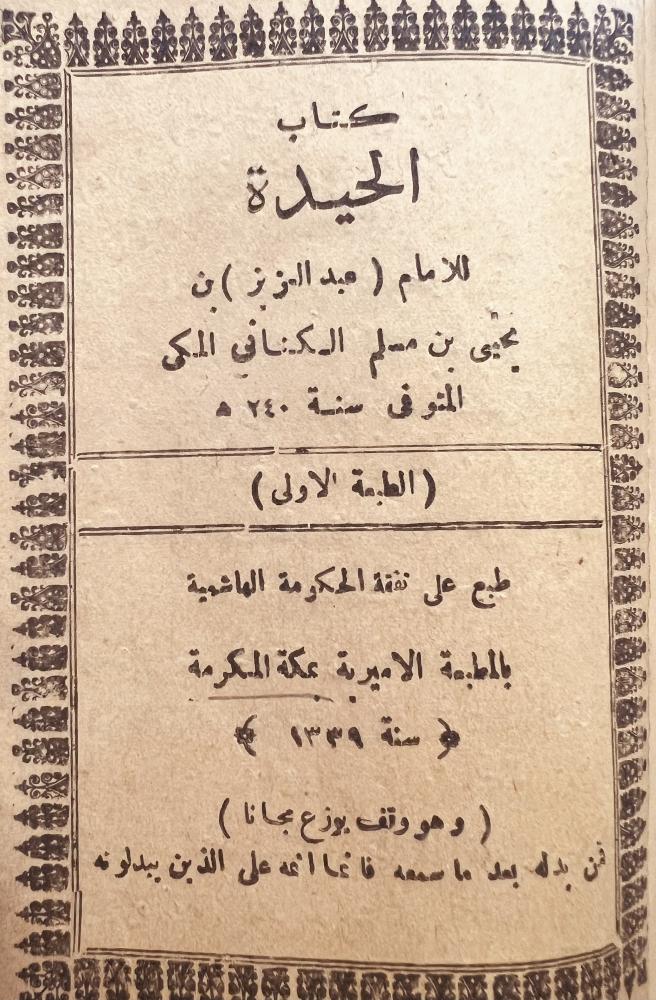 كتاب
الحيدة
للامام ( عبد العزيز ) بن
يحيى بن مسلم الكناني المكي
المتوفى سنة ٢٤٠ ه
( الطبعة الاولى )
طبع على نفقة الحكومة الهاشمية
بالمطبعة الاميرية بمكة المكرمة
﴿ سنة ١٣٣٩ ﴾
( وهو وقف يوزع مجانا )
فمن بدله بعد ما سمعه فانما اثمه على الذين يبدلونه